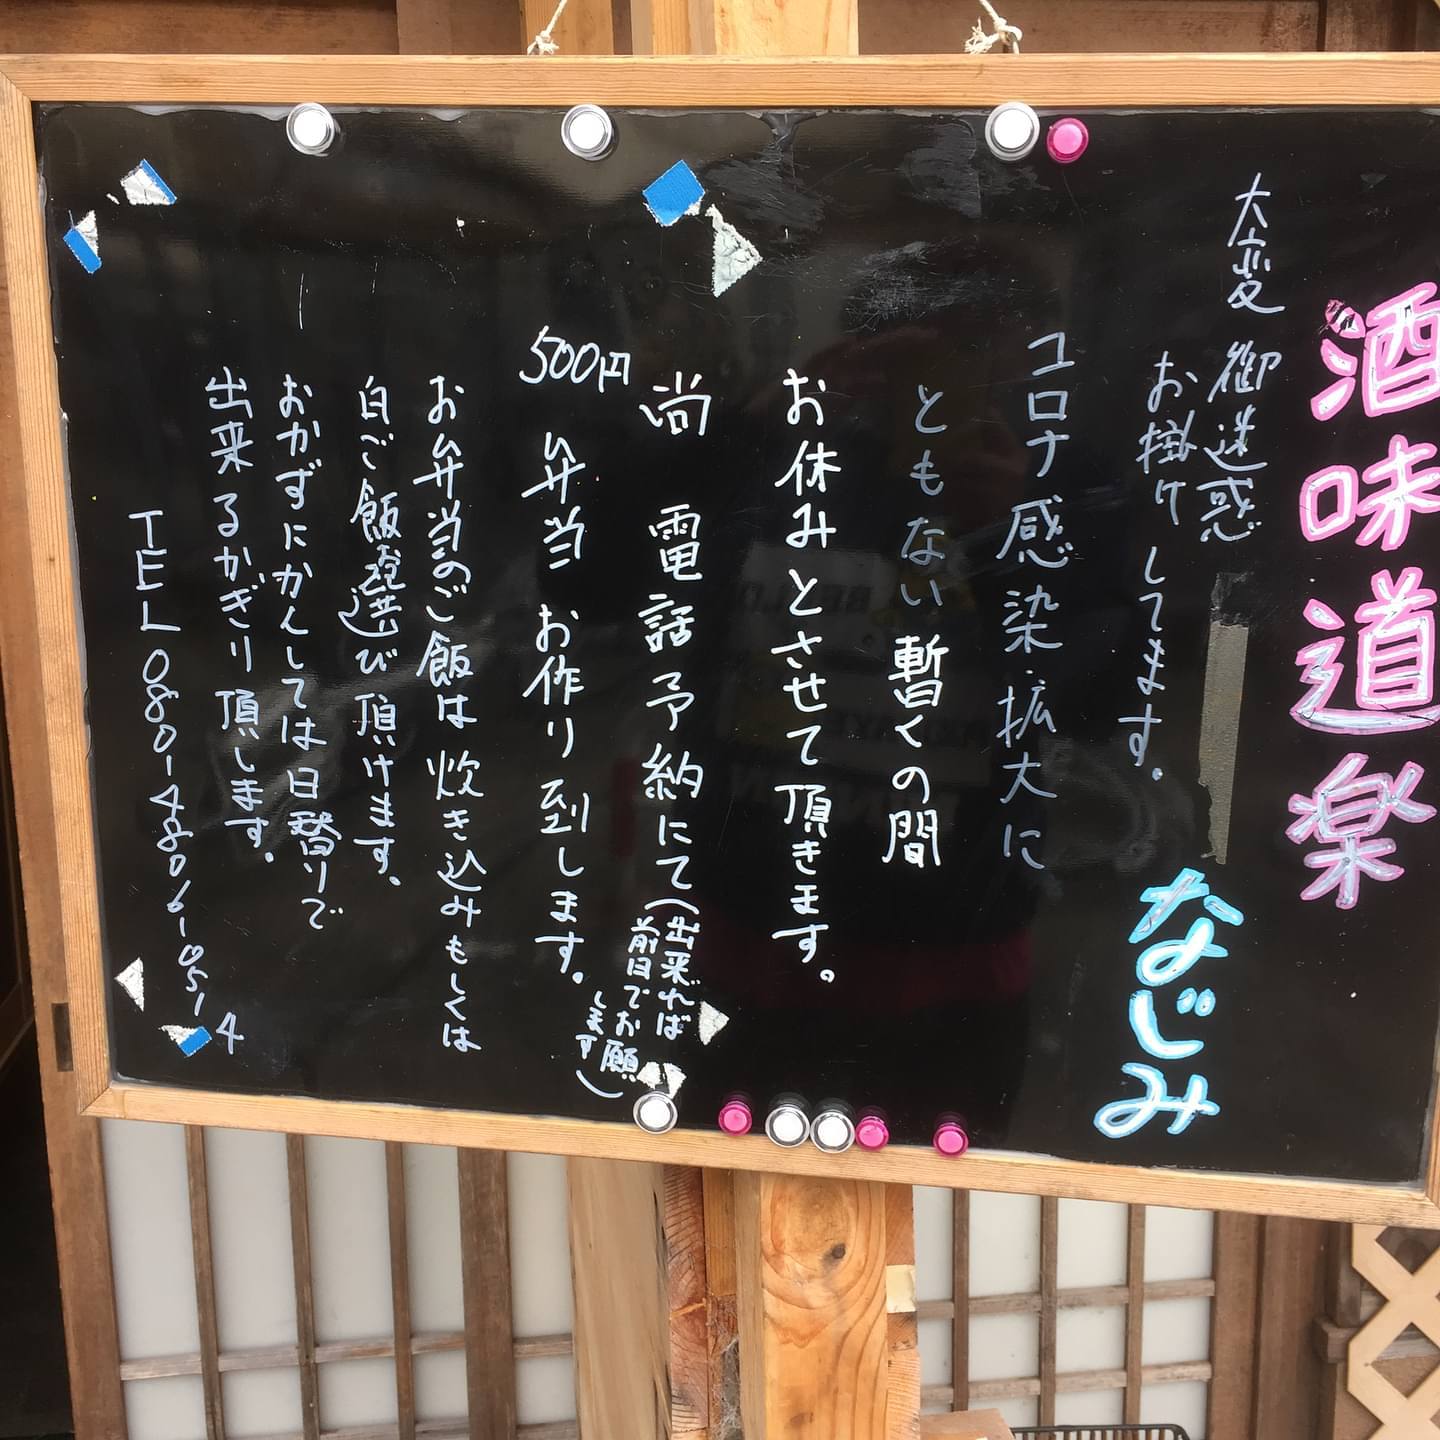 酒味道楽
なじみ
大変御迷惑
お掛けしてます。
コロナ感染・拡大に
ともない暫くの間
お休みとさせて頂きます。
尚 電話予納にて(出来れば
前日でお願
します)
500円 弁当 お作り到します。
お弁当のご飯は炊き込みもしくは
白ご飯選び頂けます。
おかずにかんしては日替りで
出来るかぎり頂します。
TEL 080-4806-0514